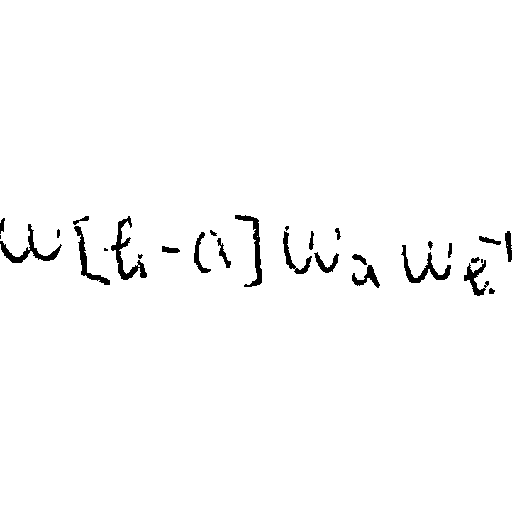 w[t_i-a]w_a w_e^{-1}